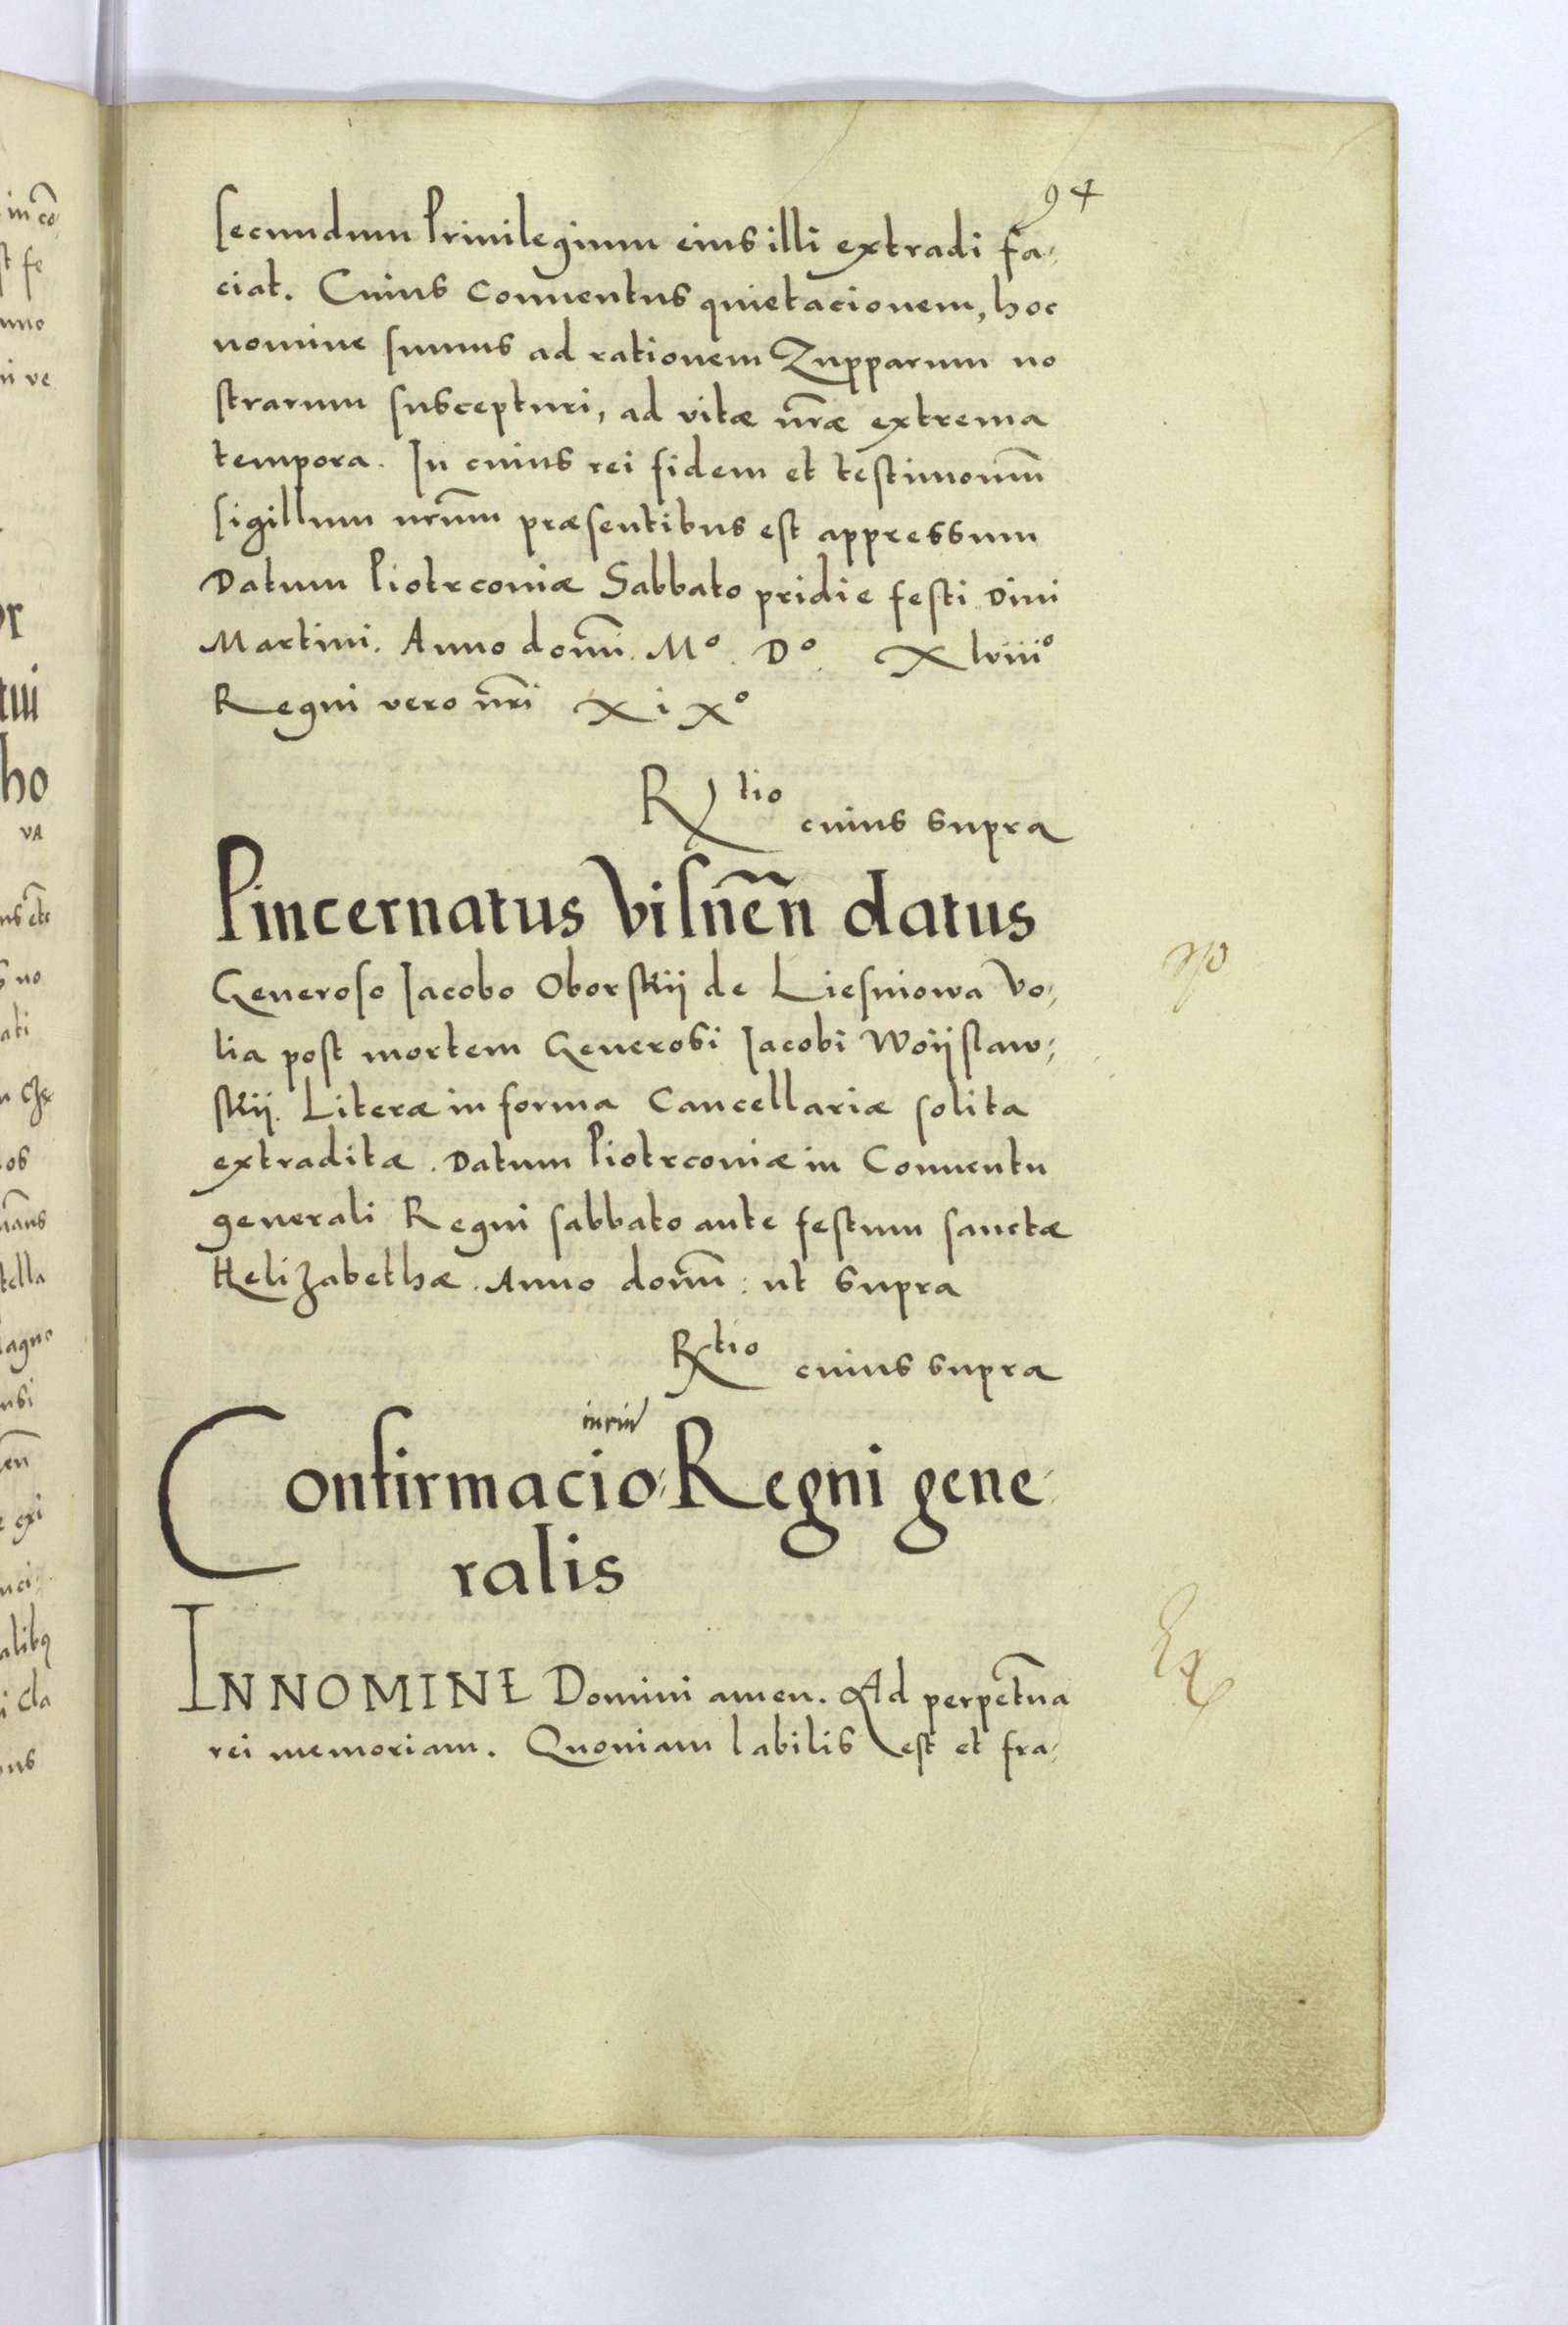 94
secundum Priuilegium eius illi extradi fa-
ciat. Cuius Conuentus quietacionem, hoc
nomine sumus ad rationem Zupparum no
strarum suscepturi, ad vitæ nr̃æ extrema
tempora. In cuius rei fidem et testimoniũ
sigillum nrũm præsentibus est appressum
Datum Piotrconiæ Sabbato pridie festi Diui
Martini. Anno domĩ. Mº. Dº. Xlviiiº
Regni vero nr̃i XiXº
Rtio cuius supra
Pincernatus Visnẽn datus
Generoso Jacobo Oborskij de Liesniowa Vo-
lia post mortem Generosi Jacobi Woijslaw-
skij. Literæ in forma Cancellariæ solita
extraditæ. Datum Piotrconiæ in Conuentu
generali Regni sabbato ante festum sanctæ
Helizabethæ. Anno domĩ: ut supra
Rtio cuius supra
Confirmacio Regni gene-
ralis
IN NOMINE Domini amen. Ad perpet̃ua
rei memoriam. Quoniam labilis est et fra-